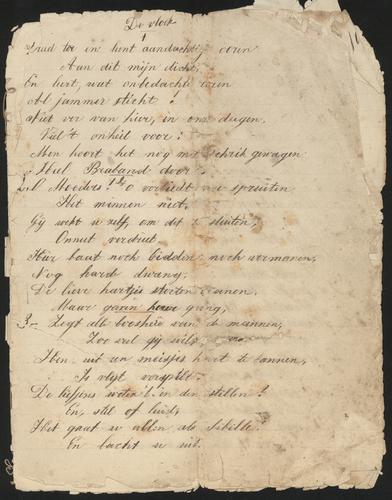 De vloek
1
Treed toe en leent aandachtig ooren
Aan dit mijn dicht,
En leert, wat onbedachte toren
Al jammer sticht!
Niet ver van hier, in om dagen,
Viel 't onheil voor:
Men hoort het nog met schrik gewagen
Heel Braband door.
2. O Moeders! O verbiedt uw spruiten
Het minnen niet,
Gij wekt u zelf, om dit te stuiten,
Onnut verdriet
Hier baat noch bidden, noch vermanen,
Nog harde dwang,
De lieve hartjes storten tranen,
Maar gaan hun gang,
3.- Zegt alle booshie van de mannen,
Zoo veel gij wilt,
Iben uit een meisjes hart te bannen,
Is vlijt verspild.
De liefjens weten 't in den stillen!
En, stil of luid,
Het gaat u allen als Sibille:
En lacht u uit.